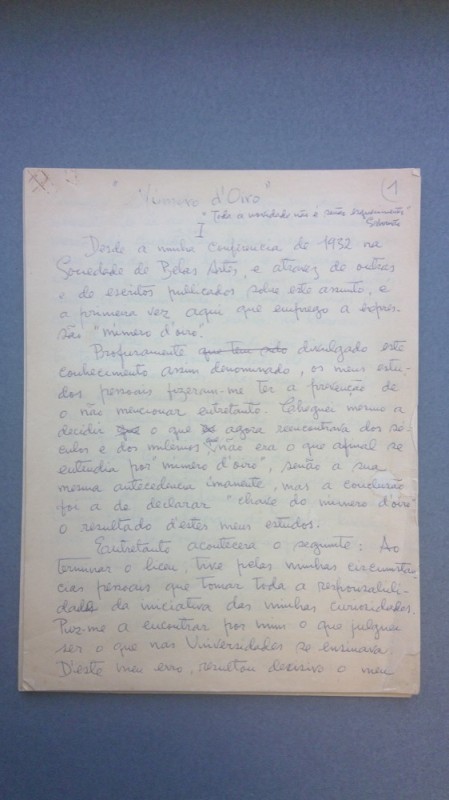 "Número d'Oiro"
(1
"Toda a novidade não é senão esquecimento"
I
Desde a minha conferencia de 1932 na
Sociedade de Belas Artes, e atravez de outras
e de escritos publicados sobre este assunto, é
a primeira vez aqui que emprego a expres-
são "número d'oiro".
Profusamente que tem sido divulgado este
conhecimento assim denominado, os meus estu-
dos pessoais fizeram-me ter a prevenção de
o não mencionar entretanto. Cheguei mesmo a
decidir que o que agora reencontrava dos se-
culos e dos milenios não era o que afinal se
entendia por número d'oiro", senão a sua
mesma antecedencia imanente, mas a conclusão
foi a de declarar "chave do número d'oiro"
o resultado d'estes meus estudos.
Entretanto acontecera o seguinte: Ao
terminar o liceu, tive pelas minhas circunstan-
cias pessoais que tomar toda a responsabili-
dade da iniciativa das minhas curiosidades.
Puz-me a encontrar por mim o que julguei
ser o que nas Universidades se ensinava.
D'este meu erro, resultou decisivo o meu